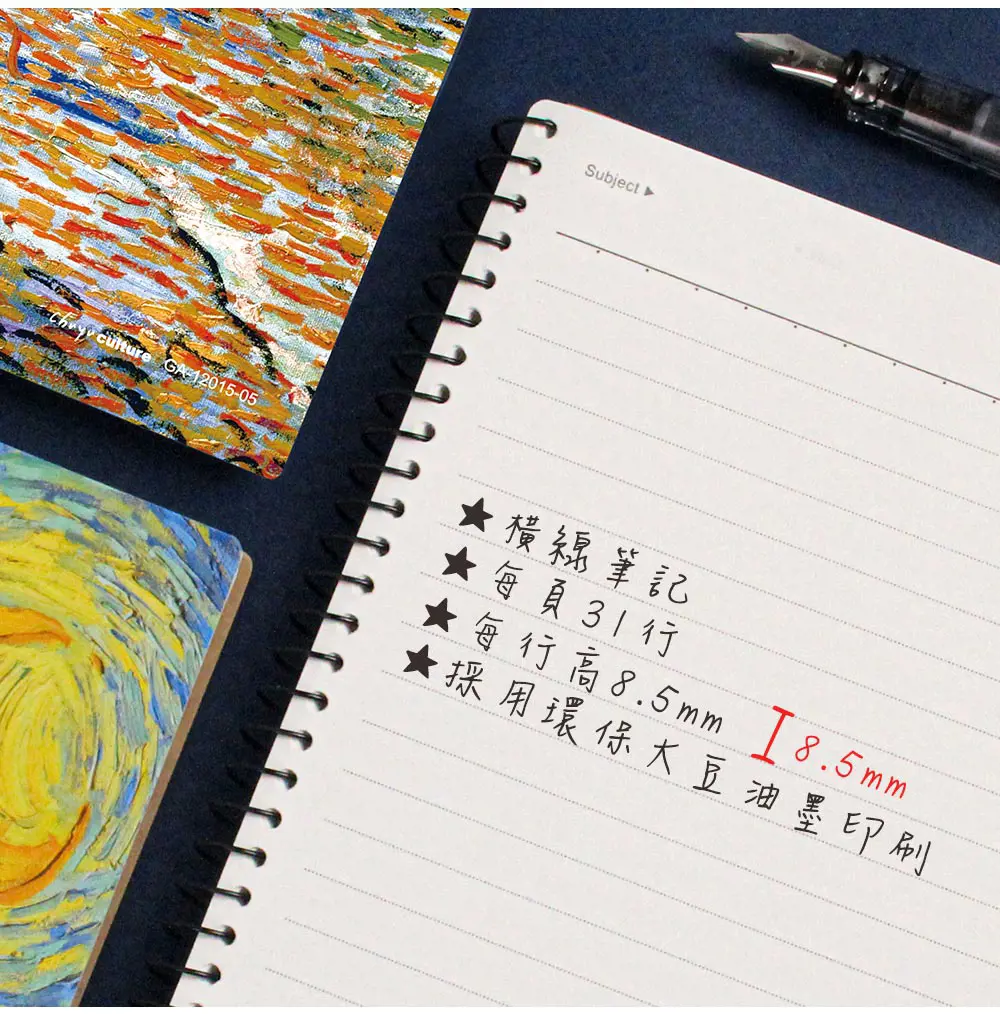 Subject ▶
chrys culture
GA-12015-05
★橫線筆記
★每頁31行
★每行高8.5mm
8.5mm
★採用環保大豆油墨印刷